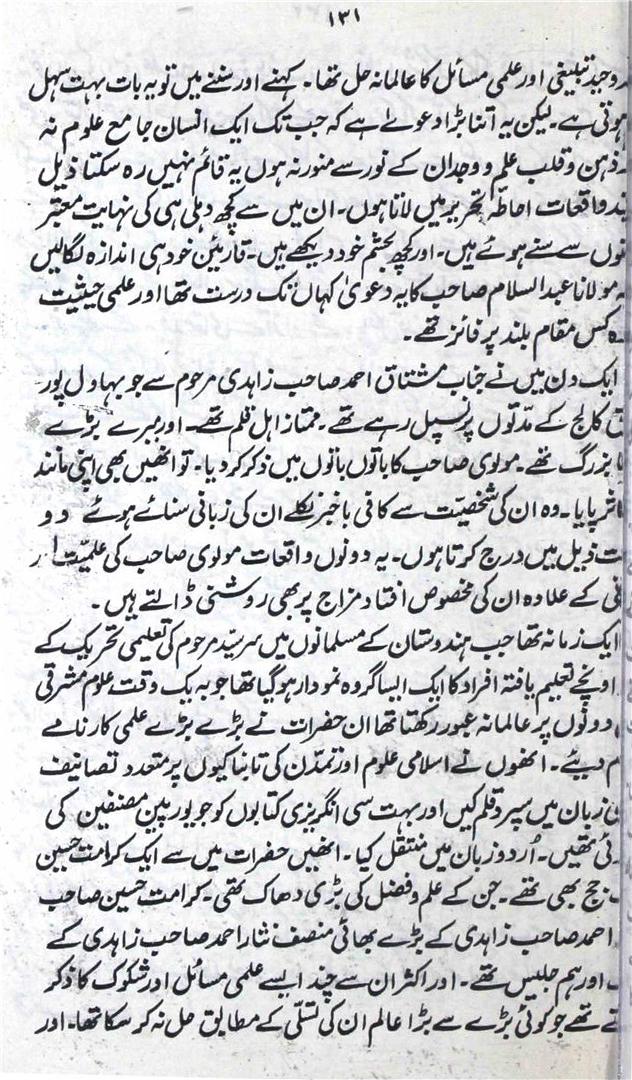 ۱۳۱
وجید تبلیغی اور علمی مسائل کا عالمانہ حل تھا۔ کہنے اور سننے میں تو یہ بات بہت سہل
ہوتی ہے۔ لیکن یہ اتنا بڑا دعویٰ ہے کہ جب تک ایک انسان جامع علوم نہ
ذہن و قلب علم و وجدان کے نور سے منور نہ ہوں یہ قائم نہیں رہ سکتا ذیل
واقعات احاطہ تحریر میں لاتا ہوں۔ ان میں سے کچھ دہلی ہی کی نہایت معتبر
سے سنے ہوئے ہیں۔ اور کچھ بچشم خود دیکھے ہیں۔ قارئین خود ہی اندازہ لگالیں
مولانا عبدالسلام صاحب کا یہ دعویٰ کہاں تک درست تھا اور علمی حیثیت
کس مقام بلند پر فائز تھے۔
ایک دن میں نے جناب مشتاق احمد صاحب زاہدی مرحوم سے جو بہاول پور
کالج کے مدتوں پرنسپل رہے تھے۔ ممتاز اہل قلم تھے۔ اور میرے بڑے
بزرگ تھے۔ مولوی صاحب کا باتوں باتوں میں ذکر کر دیا۔ تو انھیں بھی اپنی مانند
پایا۔ وہ ان کی شخصیت سے کافی باخبر نکلے ان کی زبانی سنائے ہوئے دو
ذیل میں درج کرتا ہوں۔ یہ دونوں واقعات مولوی صاحب کی علمیت
کے علاوہ ان کی مخصوص افتاد مزاج پر بھی روشنی ڈالتے ہیں۔
ایک زمانہ تھا جب ہندوستان کے مسلمانوں میں سرسید مرحوم کی تعلیمی تحریک کے
اونچے تعلیم یافتہ افراد کا ایک ایسا گروہ نمودار ہو گیا تھا جو بہ یک وقت علوم مشرقی
دونوں پر عالمانہ عبور رکھتا تھا ان حضرات نے بڑے بڑے علمی کارنامے
دیئے۔ انھوں نے اسلامی علوم اور تمدن کی تابناکیوں پر متعدد تصانیف
زبان میں سپرد قلم کیں اور بہت سی انگریزی کتابوں کو جو یورپین مصنفین کی
تھیں۔ اُردو زبان میں منتقل کیا۔ انھیں حضرات میں سے ایک کرامت حسین
جج بھی تھے۔ جن کے علم و فضل کی بڑی دھاک تھی۔ کرامت حسین صاحب
احمد صاحب زاہدی کے بڑے بھائی منصف نثار احمد صاحب زاہدی کے
اور ہم جلیس تھے۔ اور اکثر ان سے چند ایسے علمی مسائل اور شکوک کا ذکر
تھے جو کوئی بڑے سے بڑا عالم ان کی تسلّی کے مطابق حل نہ کر سکا تھا۔ اور